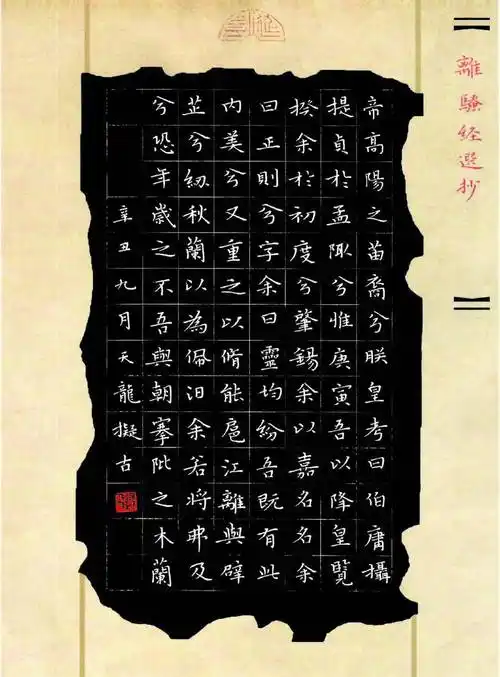 離騷經選抄
帝高陽之苗裔兮朕皇考曰伯庸攝
提貞於孟陬兮惟庚寅吾以降皇覽
揆余於初度兮肇錫余以嘉名名余
曰正則兮字余曰靈均紛吾既有此
内美兮又重之以脩能扈江離與辟
芷兮紉秋蘭以為佩汩余若將弗及
兮恐年歲之不吾與朝搴阰之木蘭
辛丑九月天龍擬古